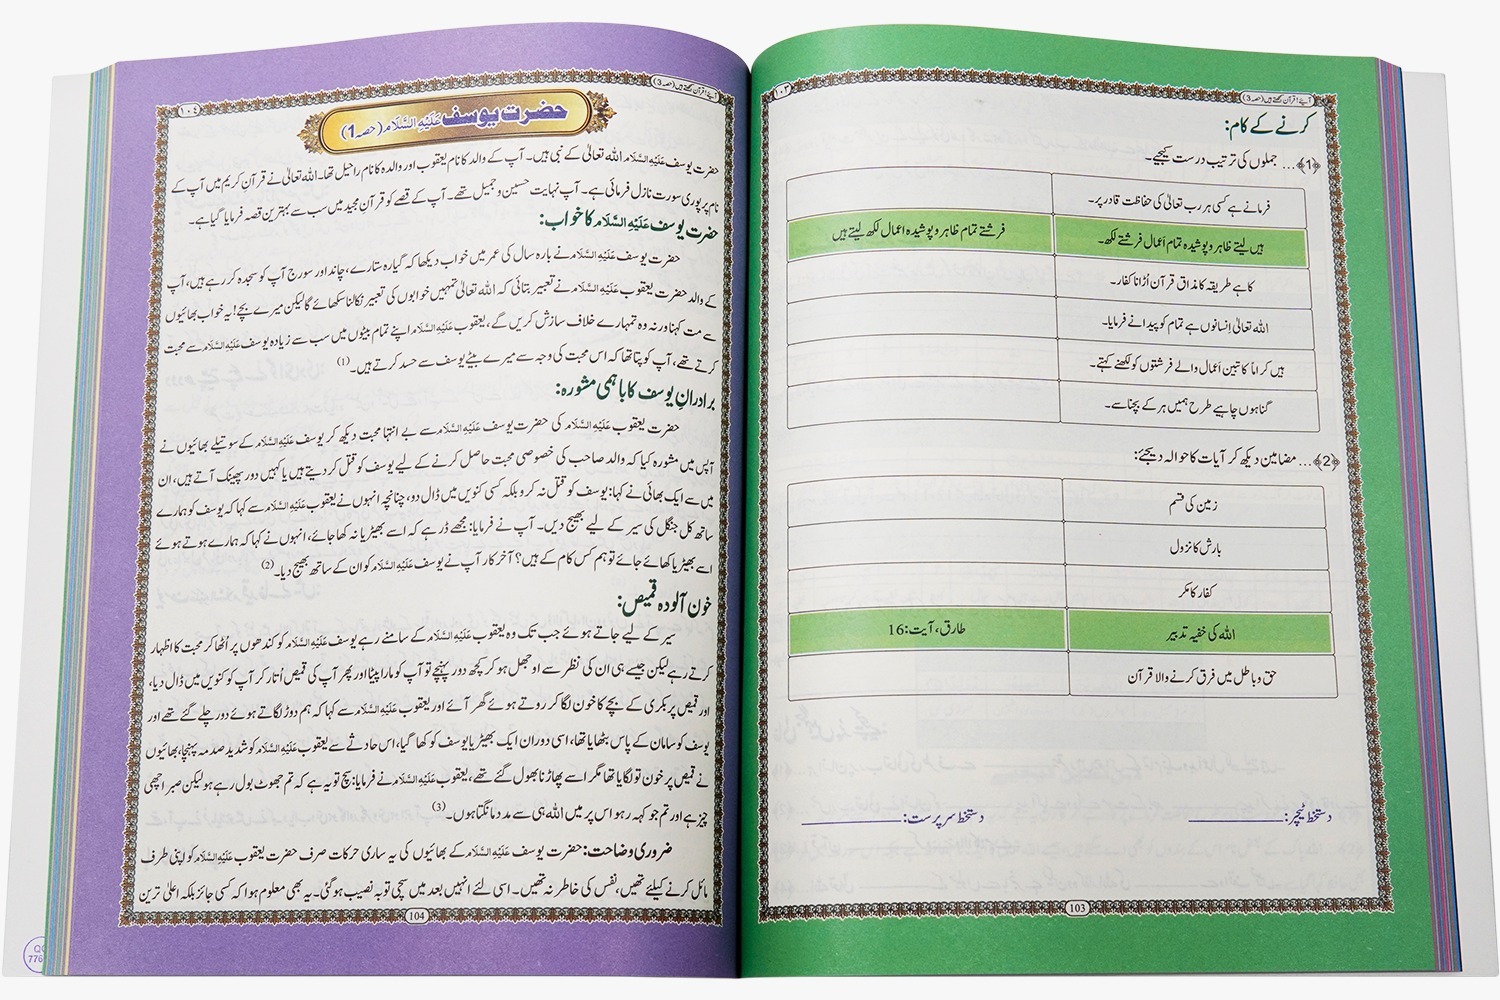 ۱۰۳
آیئے! قرآن سمجھتے ہیں (حصہ 3)
کرنے کے کام:
﴿1﴾... جملوں کی ترتیب درست کیجیے۔
فرمانے ہے کسی ہر رب تعالیٰ کی حفاظت قادر پر۔
ہیں لیتے ظاہر و پوشیدہ تمام اَعمال فرشتے لکھ۔ فرشتے تمام ظاہر و پوشیدہ اعمال لکھ لیتے ہیں
کا ہے طریقہ کا مذاق قرآن اُڑانا کفار۔
اللہ تعالیٰ اِنسانوں ہے تمام کو پیدا نے فرمایا۔
ہیں کراماً کاتبین اَعمال والے فرشتوں کو لکھنے کہتے۔
گناہوں چاہیے طرح ہمیں ہر کے بچنا سے۔
﴿2﴾... مضامین دیکھ کر آیات کا حوالہ دیجئے:
زمین کی قسم
بارش کا نزول
کفار کا مکر
اللہ کی خفیہ تدبیر طارق، آیت: 16
حق و باطل میں فرق کرنے والا قرآن
دستخط ٹیچر: دستخط سرپرست:
103
آیئے! قرآن سمجھتے ہیں (حصہ 3)
۱۰٤
حضرت یوسف عَلَيْهِ السَّلَام (حصہ 1)
حضرت یوسف عَلَيْهِ السَّلَام اللہ تعالیٰ کے نبی ہیں۔ آپ کے والد کا نام یعقوب اور والدہ کا نام راحیل تھا۔ اللہ تعالیٰ نے قرآنِ کریم میں آپ کے
نام پر پوری سورت نازل فرمائی ہے۔ آپ نہایت حسین و جمیل تھے۔ آپ کے قصے کو قرآنِ مجید میں سب سے بہترین قصہ فرمایا گیا ہے۔
حضرت یوسف عَلَيْهِ السَّلَام کا خواب:
حضرت یوسف عَلَيْهِ السَّلَام نے بارہ سال کی عمر میں خواب دیکھا کہ گیارہ ستارے، چاند اور سورج آپ کو سجدہ کر رہے ہیں، آپ
کے والد حضرت یعقوب عَلَيْهِ السَّلَام نے تعبیر بتائی کہ اللہ تعالیٰ تمہیں خوابوں کی تعبیر نکالنا سکھائے گا لیکن میرے بچے! یہ خواب بھائیوں
سے مت کہنا ورنہ وہ تمہارے خلاف سازش کریں گے، یعقوب عَلَيْهِ السَّلَام اپنے تمام بیٹوں میں سب سے زیادہ یوسف عَلَيْهِ السَّلَام سے محبت
کرتے تھے، آپ کو پتا تھا کہ اس محبت کی وجہ سے میرے بیٹے یوسف سے حسد کرتے ہیں۔ (1)
برادرانِ یوسف کا باہمی مشورہ:
حضرت یعقوب عَلَيْهِ السَّلَام کی حضرت یوسف عَلَيْهِ السَّلَام سے بے انتہا محبت دیکھ کر یوسف عَلَيْهِ السَّلَام کے سوتیلے بھائیوں نے
آپس میں مشورہ کیا کہ والد صاحب کی خصوصی محبت حاصل کرنے کے لیے یوسف کو قتل کر دیتے ہیں یا کہیں دور پھینک آتے ہیں، ان
میں سے ایک بھائی نے کہا: یوسف کو قتل نہ کرو بلکہ کسی کنویں میں ڈال دو، چنانچہ انہوں نے یعقوب عَلَيْهِ السَّلَام سے کہا کہ یوسف کو ہمارے
ساتھ کل جنگل کی سیر کے لیے بھیج دیں۔ آپ نے فرمایا: مجھے ڈر ہے کہ اسے بھیڑیا نہ کھا جائے، انہوں نے کہا کہ ہمارے ہوتے ہوئے
اسے بھیڑیا کھائے جائے تو ہم کس کام کے ہیں؟ آخر کار آپ نے یوسف عَلَيْهِ السَّلَام کو ان کے ساتھ بھیج دیا۔ (2)
خون آلودہ قمیص:
سیر کے لیے جاتے ہوئے جب تک وہ یعقوب عَلَيْهِ السَّلَام کے سامنے رہے یوسف عَلَيْهِ السَّلَام کو کندھوں پر اُٹھا کر محبت کا اظہار
کرتے رہے لیکن جیسے ہی ان کی نظر سے اوجھل ہو کر کچھ دور پہنچے تو آپ کو مارا پیٹا اور پھر آپ کی قمیص اُتار کر آپ کو کنویں میں ڈال دیا،
اور قمیص پر بکری کے بچے کا خون لگا کر روتے ہوئے گھر آئے اور یعقوب عَلَيْهِ السَّلَام سے کہا کہ ہم دوڑ لگاتے ہوئے دور چلے گئے تھے اور
یوسف کو سامان کے پاس بٹھایا تھا، اسی دوران ایک بھیڑیا یوسف کو کھا گیا، اس حادثے سے یعقوب عَلَيْهِ السَّلَام کو شدید صدمہ پہنچا، بھائیوں
نے قمیص پر خون تو لگایا تھا مگر اسے پھاڑنا بھول گئے تھے، یعقوب عَلَيْهِ السَّلَام نے فرمایا: سچ تو یہ ہے کہ تم جھوٹ بول رہے ہو لیکن صبر اچھی
چیز ہے اور تم جو کہہ رہو اس پر میں اللہ ہی سے مدد مانگتا ہوں۔ (3)
ضروری وضاحت: حضرت یوسف عَلَيْهِ السَّلَام کے بھائیوں کی یہ ساری حرکات صرف حضرت یعقوب عَلَيْهِ السَّلَام کو اپنی طرف
مائل کرنے کیلئے تھیں، نفس کی خاطر نہ تھیں۔ اسی لئے انہیں بعد میں سچی توبہ نصیب ہو گئی۔ یہ بھی معلوم ہوا کہ کسی جائز بلکہ اعلیٰ ترین
104